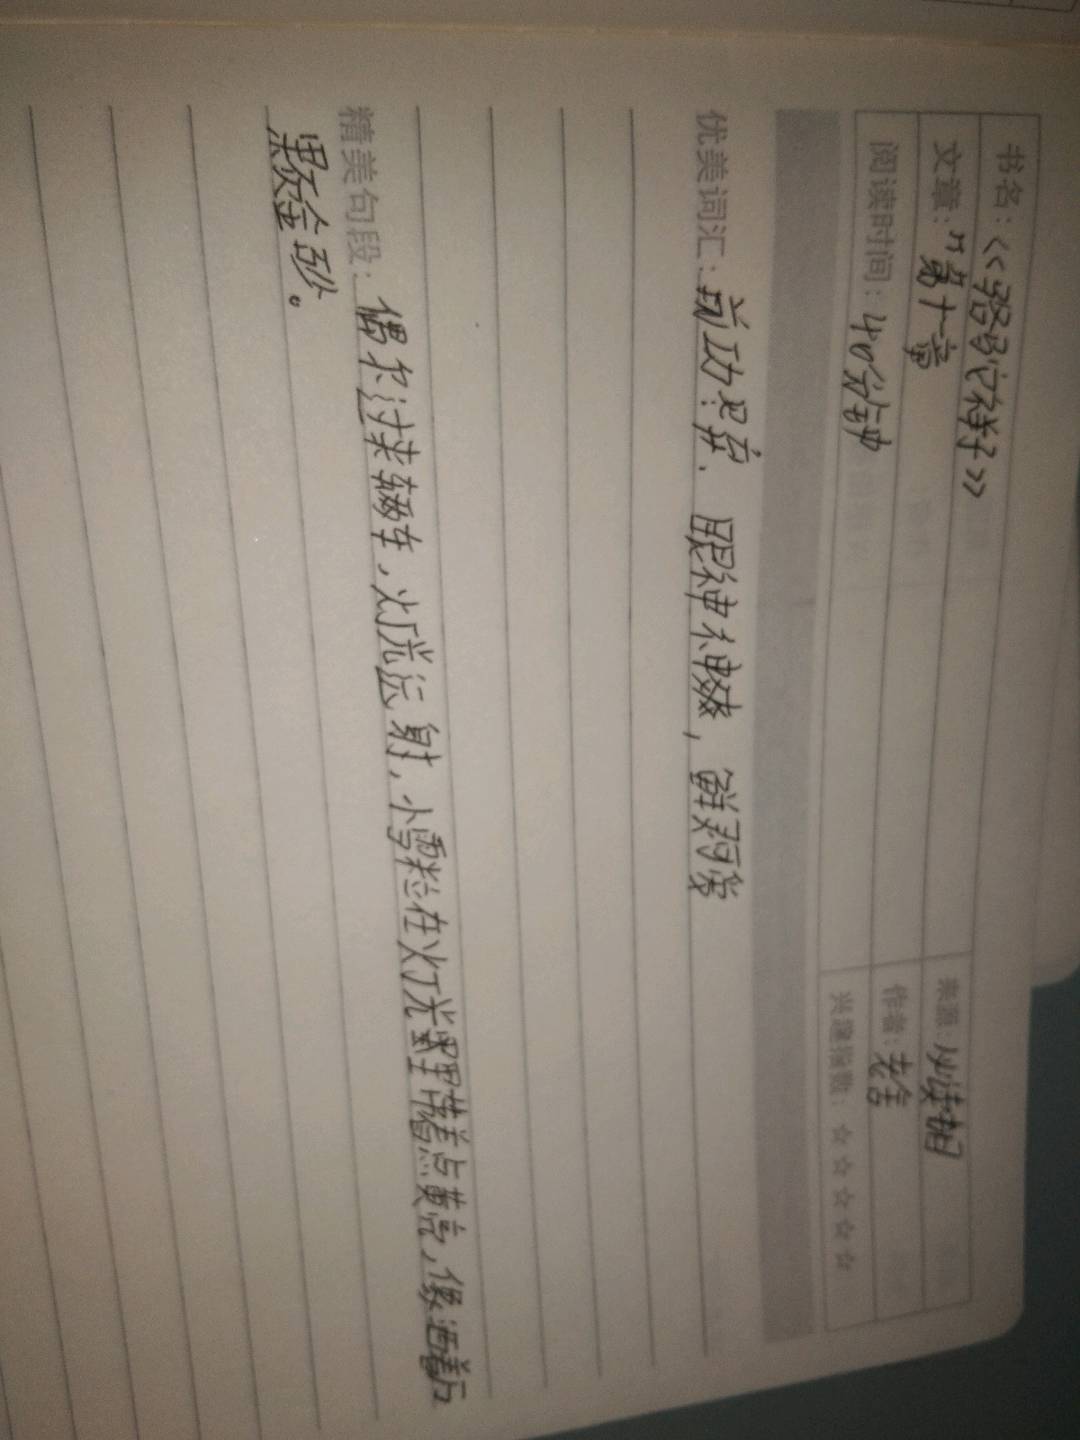 书名：《骆驼祥子》
文章："第十章
来源：必读书目
阅读时间：40分钟
作者：老舍
兴趣指数：☆☆☆☆☆
优美词汇：前功尽弃、眼神神爽，鲜
精美句段：偶尔过来辆车，灯光远射，小雪粒在灯光里带着点黄亮，像洒着万
颗金砂。